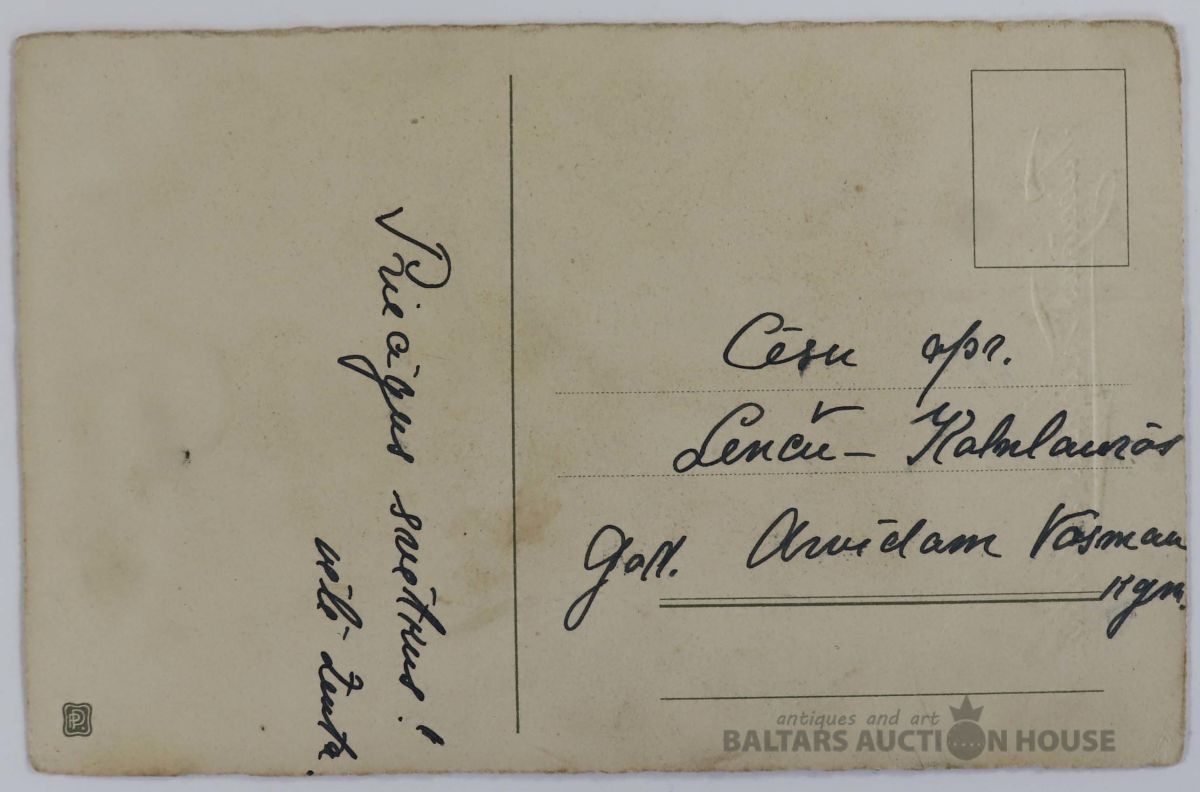 Priecīgus svētkus!
vēlē Zenta.
Cēsu apr.
Lenču-Kalnlauvās
God. Arvidam Vasman
kgm.
antiques and art
BALTARS AUCTION HOUSE